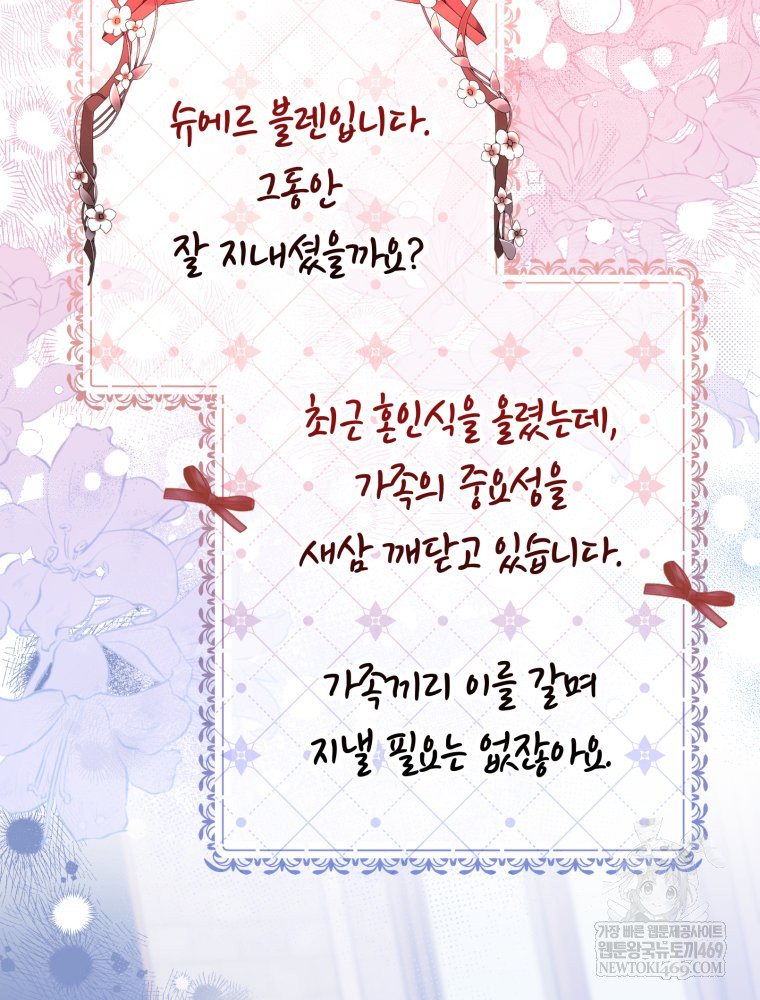 슈에르 블렌입니다.
그동안
잘 지내셨을까요?
최근 혼인식을 올렸는데,
가족의 중요성을
새삼 깨닫고 있습니다.
가족끼리 이를 갈며
지낼 필요는 없잖아요.
가장 빠른 웹툰제공사이트
웹툰왕국뉴토끼469
NEWTOKI469.COM